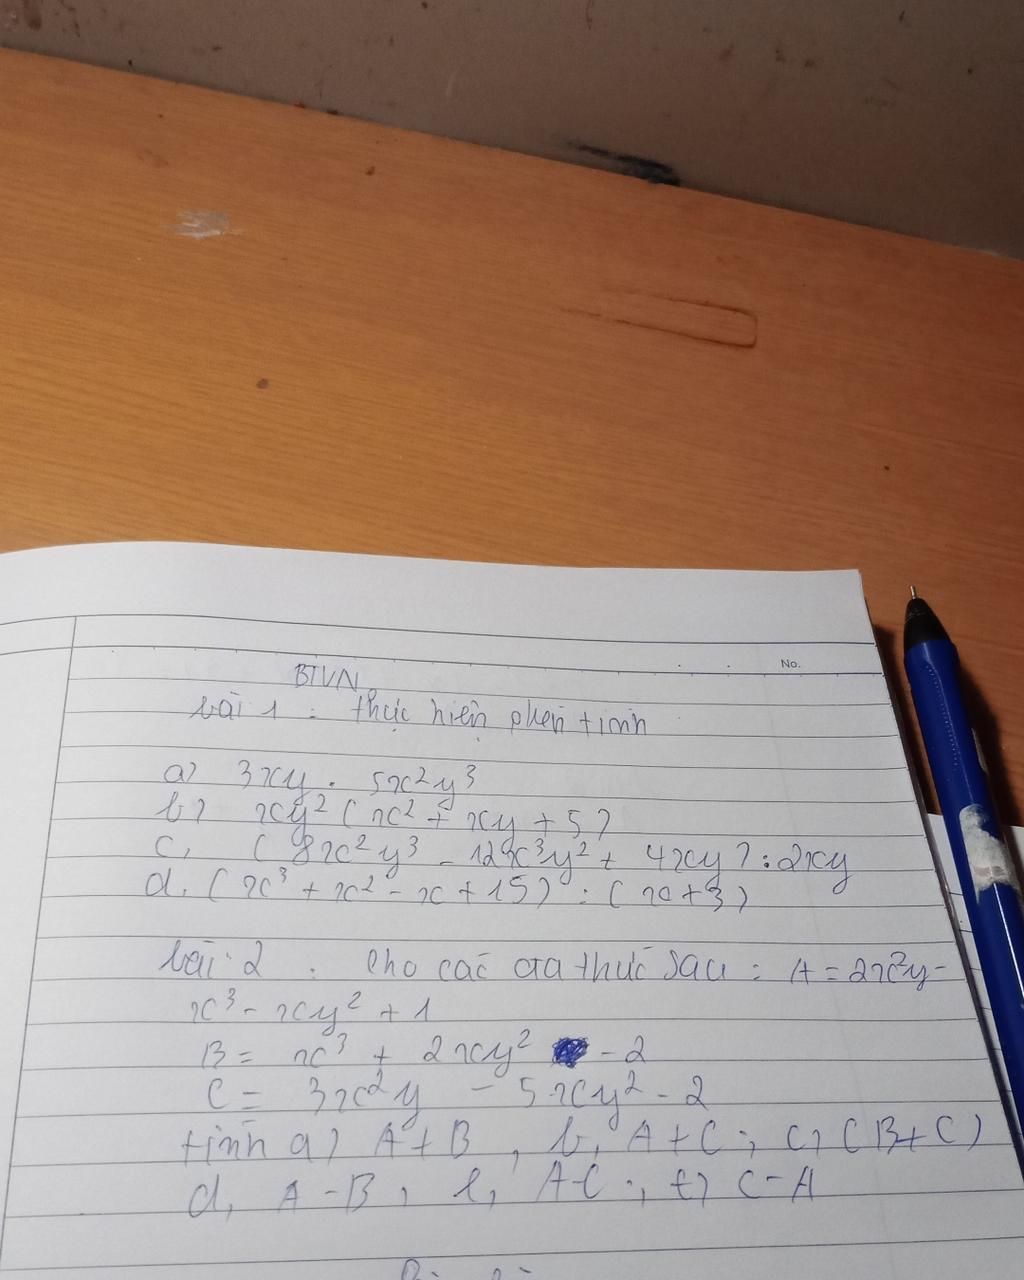 No.
BTVN
bài 1 : thực hiện phép tính
a) 3xy . 5x²y³
b) xy² ( x² + xy + 5)
c, ( 8x²y³ - 12x³y² + 4xy) : 2xy
d, ( x³ + x² - x + 15) : ( x + 3 )
bài 2 : cho các đa thức sau : A = 2x²y -
x³ - xy² + 1
B = x³ + 2xy² - 2
C = 3x²y - 5xy² - 2
tính a) A + B , b, A + C ; c) ( B + C )
d, A - B , e, A - C ; f) C - A